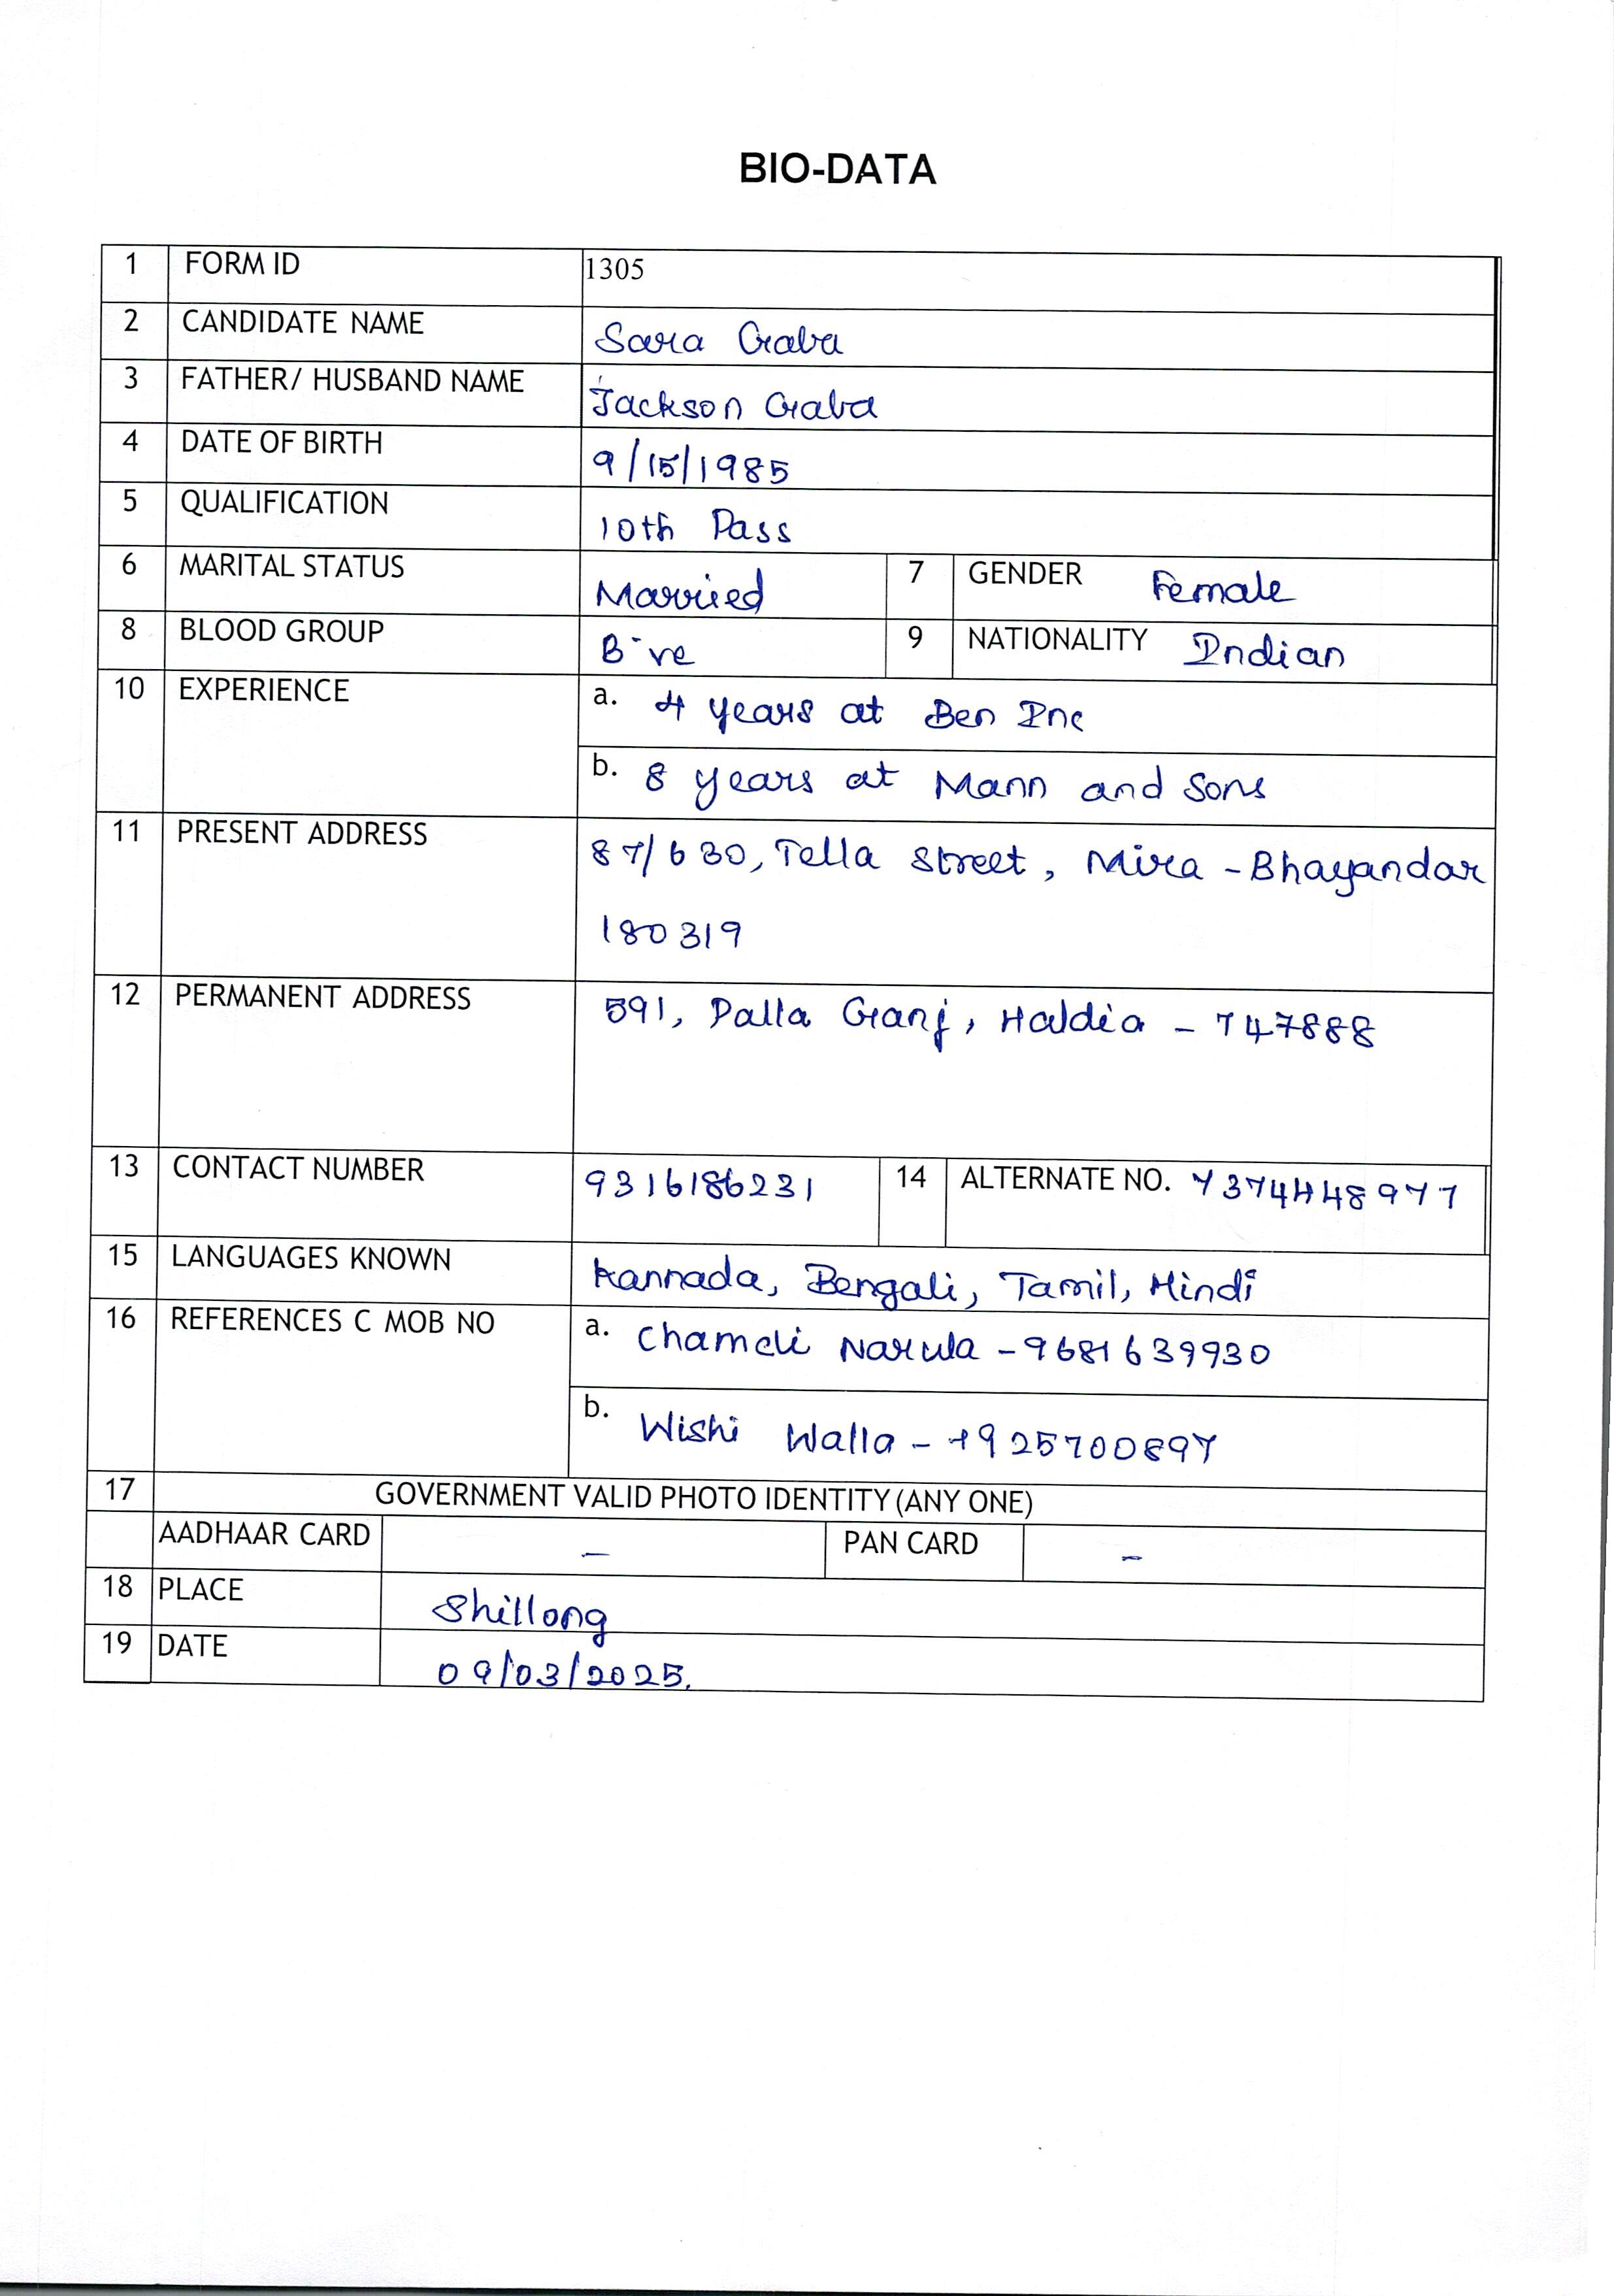 BIO-DATA
1 FORM ID 1305
2 CANDIDATE NAME Sara Gaba
3 FATHER/ HUSBAND NAME Jackson Gaba
4 DATE OF BIRTH 9/15/1985
5 QUALIFICATION 10th Pass
6 MARITAL STATUS Married 7 GENDER Female
8 BLOOD GROUP B-ve 9 NATIONALITY Indian
10 EXPERIENCE a. 4 years at Ben Inc
b. 8 years at Mann and Sons
11 PRESENT ADDRESS 87/630, Tella Street, Mira - Bhayandar
180319
12 PERMANENT ADDRESS 591, Dalla Ganj, Haldia - 747888
13 CONTACT NUMBER 9316186231 14 ALTERNATE NO. 7374448977
15 LANGUAGES KNOWN Kannada, Bengali, Tamil, Hindi
16 REFERENCES C MOB NO a. Chameli Narula - 9681639930
b. Wishi Walla - +925700897
17 GOVERNMENT VALID PHOTO IDENTITY (ANY ONE)
AADHAAR CARD - PAN CARD -
18 PLACE Shillong
19 DATE 09/03/2025.